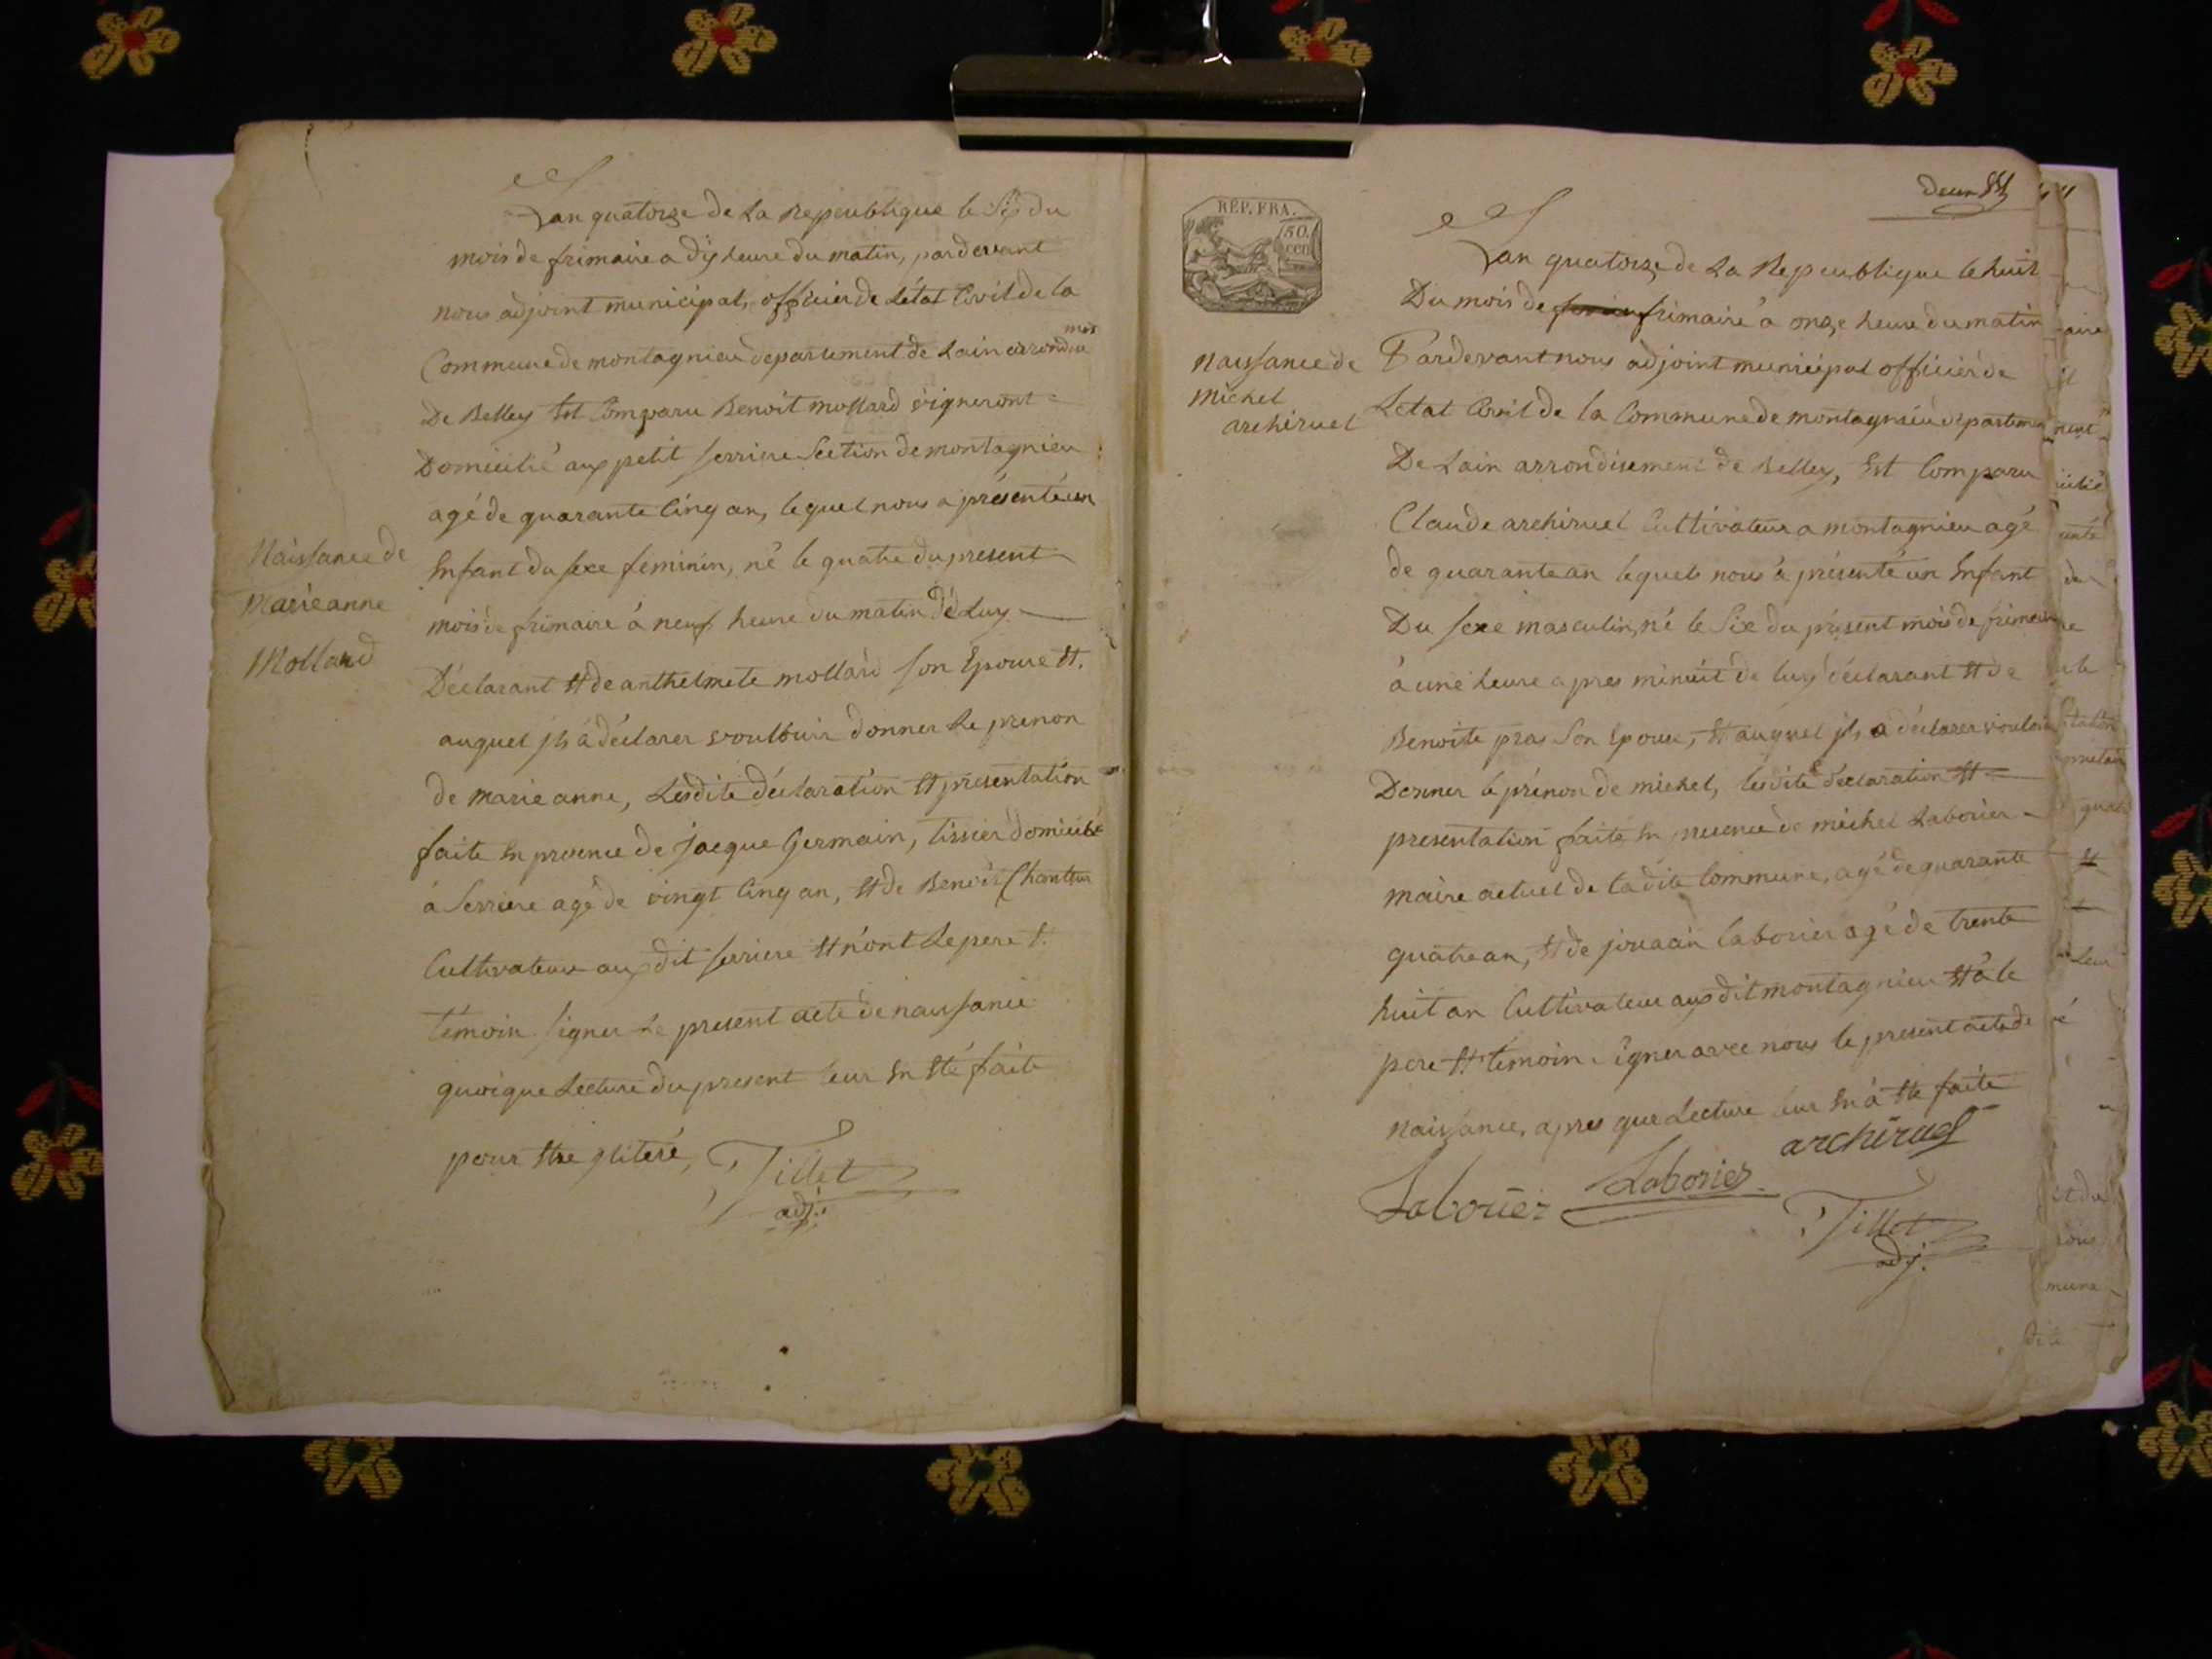 Lan quatorze de La Republique le Six du
mois de frimaire a dix heure du matin, pardevant
nous adjoint municipal, officier de L'état Civil de la
Commune de montagnieu departement de Lain arrondise
ment
De Belley Est Comparu Benoit mollard vigneront
Domicilié aux petit serriere Section de montagnieu
agé de quarante Cinq an, lequel nous a présenté un
Naissance de
Marie anne
Mollard
Enfant du sexe feminin, né le quatre du present
mois de frimaire à neuf heure du matin de Luy
Déclarant Et de anthelmete mollard son Epouse Et
auquel jls à déclarer voulouir donner Le prenon
de marie anne, Lesdite déclaration Et presentation
faite En presence de jacque Germain, tissier domicilié
à Serriere agé de vingt Cinq an, Et de Benoit
Cultivateur aux dit serriere Et n'ont Le pere Et
témoin signer Le present acte de naissance
quoique Lecture du present leur En Eté faite
pour Etre
Tillet
adj.
REP. FRA.
50.
cen
Deux
Lan quatorze de La Republique le huit
Du mois de frimaire à onze heure du matin
Naissance de
Michel
archiruel
Pardevant nous adjoint municipal officiér de
Létat Civil de la Commune de montagnieu departemen
De Lain arrondisement de Belley, Est Comparu
Claude archiruel Cultivateur a montagnieu agé
de quarante an lequels nous à présenté un Enfant
Du sexe masculin, né le Six du présent mois de frimaire
à une heure apres minuit de luy déclarant Et de
Benoite pras Son Epouse, Et auquel jls a déclarer vouloir
Donner le prénon de michel, lesdite déclaration Et
presentation faite En presence de michel Laborier
maire actuel de ladite Commune, agé de quarante
quatre an, Et de laborier agé de trente
huit an Cultivateur aux dit montagnieu Et à le
pere Et témoin signer avec nous le present acte de
naissance, apres que Lecture leur En à Ete faite
archiruel
Laborier
Laborier
Tillet
adj.